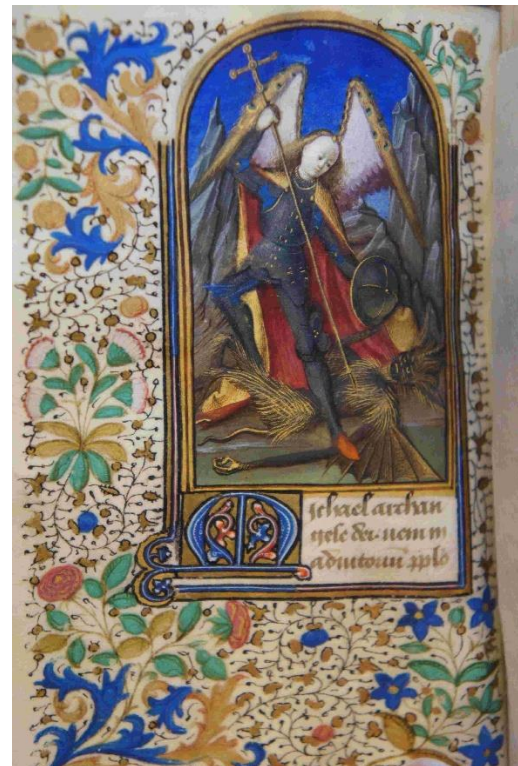 Michael archan
gele dei ueni in
adiutoriu pplo